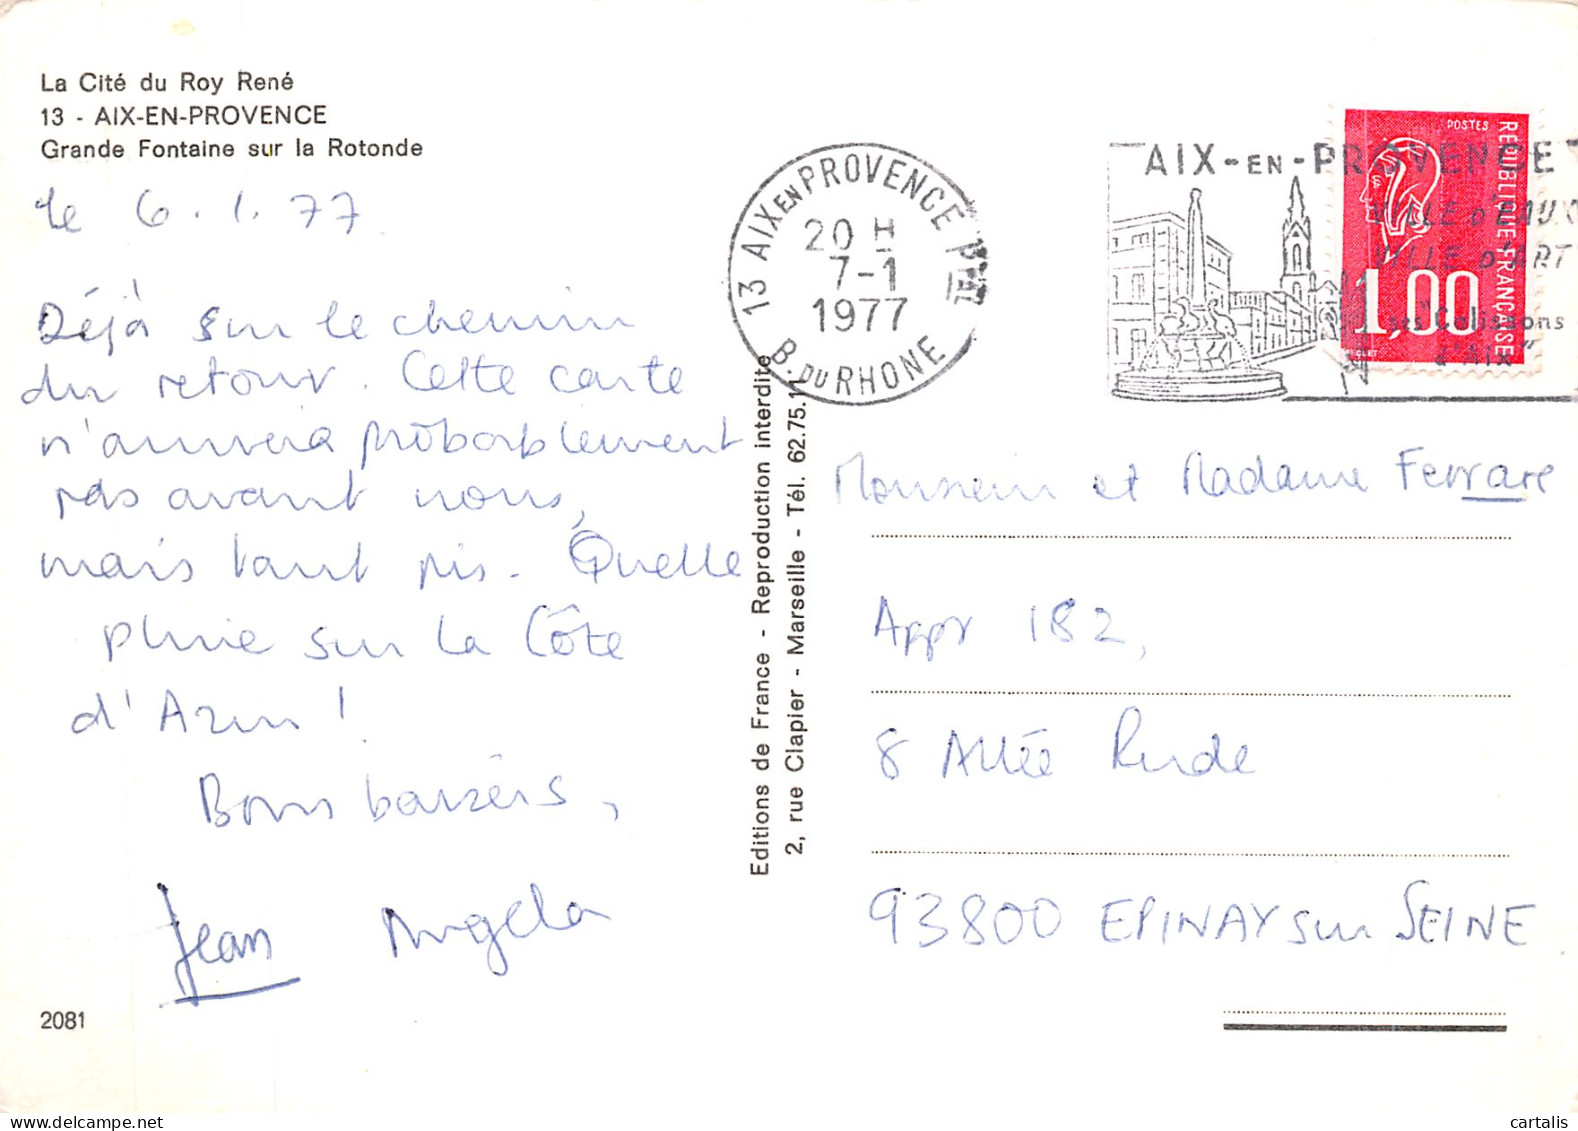 La Cité du Roy René
13 - AIX-EN-PROVENCE
Grande Fontaine sur la Rotonde
le 6.1.77
Déjà sur le chemin
du retour. Cette carte
n'arrivera probablement
pas avant nous,
mais tant pis. Quelle
pluie sur la Côte
d'Azur !
Bons baisers,
Jean Angela
2081
Editions de France - Reproduction interdite
2, rue Clapier - Marseille - Tél. 62.75.11
13 AIX EN PROVENCE PPAL
20 H
7-1
1977
B. DU RHONE
AIX-EN-PROVENCE
VILLE d'EAUX
VILLE D'ART
ses "Calissons
d'Aix"
POSTES
REPUBLIQUE FRANÇAISE
1,00
BEQUET
Monsieur et Madame Ferrare
Appt 182,
8 Allée Rude
93800 EPINAY sur SEINE
cartalis